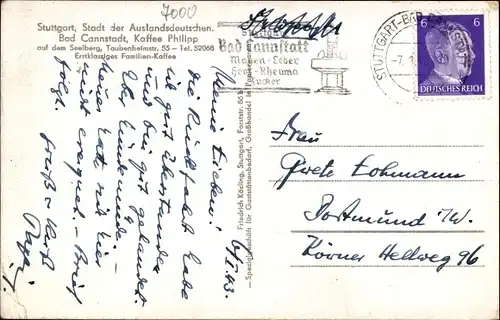 7000
Stuttgart, Stadt der Auslandsdeutschen.
Bad Cannstadt, Kaffee Philipp
auf dem Seelberg, Taubenheimstr. 55 — Tel. 52068
Erstklassiges Familien-Kaffee
Bad Cannstatt
Magen-Leber
Herz-Rheuma
Zucker
STUTTGART-BAD
6 6
DEUTSCHES REICH
Friedrich Kösling, Stuttgart, Forststr.
Spezialgeschäft für Gaststättenbedarf, Großhandel in
Meine Lieben!
die Rückfahrt habe
ich gut überstanden
und bin gut gelandet.
hat sich hier
nicht ereignet. Brief
folgt.
Gruß
Frau
Grete Lohmann
Dortmund i/W.
Körner Hellweg 96